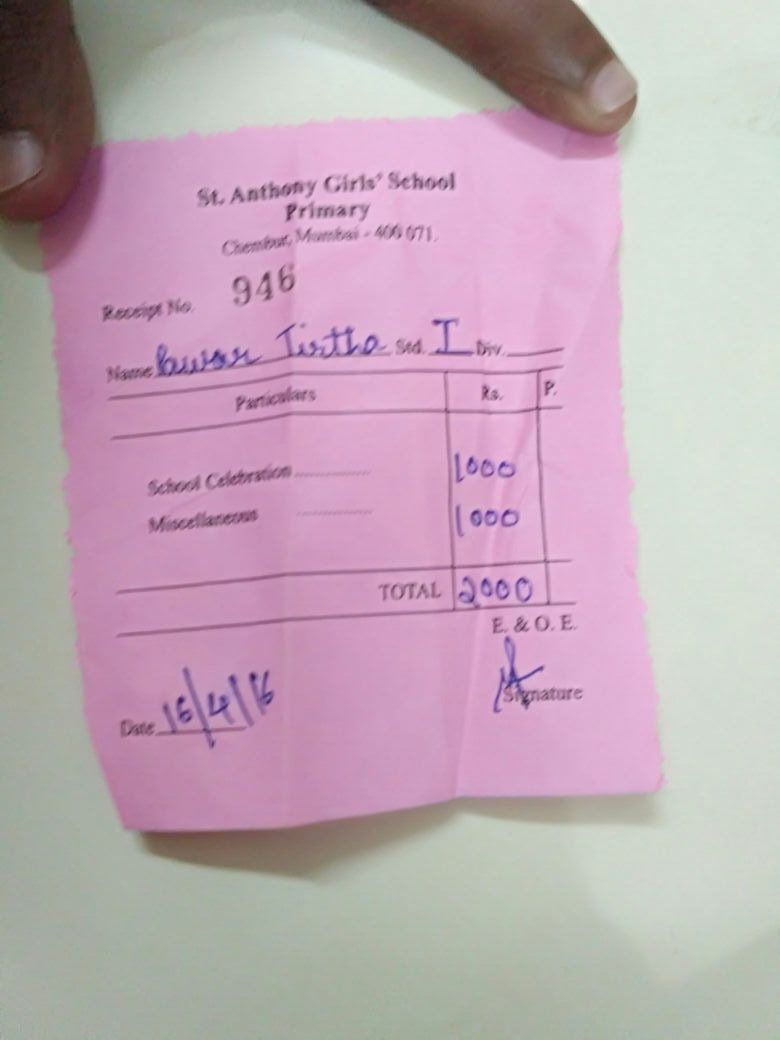 St. Anthony Girls' School
Primary
Chembur, Mumbai - 400 071.
Receipt No. 946
Name Pawar Tirtha Std. I Div.
Particulars Rs. P.
School Celebration .................. 1000
Miscellaneous .................. 1000
TOTAL 2000
E. & O. E.
Signature
Date 16/4/16